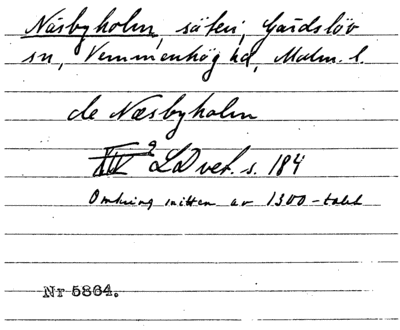 Näsbyholm, säteri, Gärdslöv
sn, Vemmenhög hd, Malm. l.
de Næsbyholm
LD vet. s. 184
Omkring mitten av 1300-talet
Nr 5864.